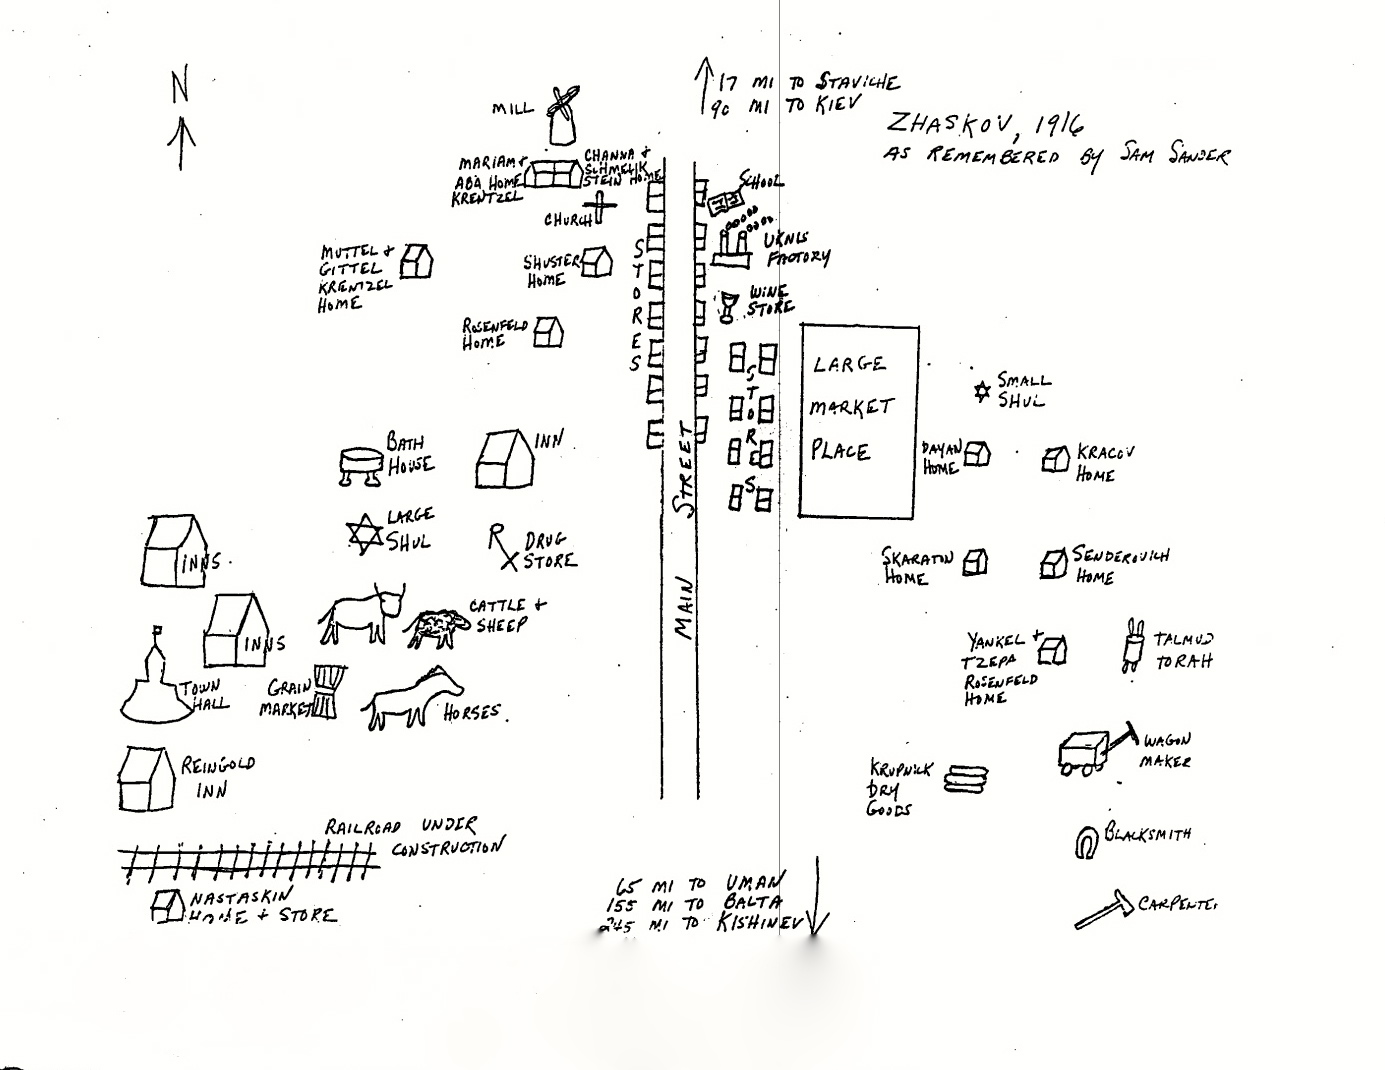 N
17 MI TO STAVICHE
90 MI TO KIEV
ZHASKOV, 1916
AS REMEMBERED BY SAM SANDER
MILL
MARIAM +
ABA HOME
KRENTZEL
CHANNA +
SCHMELIK
STEIN HOME
CHURCH
SCHOOL
MUTTEL +
GITTEL
KRENTZEL
HOME
SHUSTER
HOME
STORES
FACTORY
WINE
STORE
ROSENFELD
HOME
STORES
LARGE
MARKET
PLACE
SMALL
SHUL
BATH
HOUSE
INN
DAYAN
HOME
KRACOV
HOME
MAIN STREET
LARGE
SHUL
DRUG
STORE
INNS
SKARATON
HOME
SENDEROVICH
HOME
INNS
CATTLE +
SHEEP
YANKEL +
TZEPA
ROSENFELD
HOME
TALMUD
TORAH
TOWN
HALL
GRAIN
MARKET
HORSES
REINGOLD
INN
KRUPNICK
DRY
GOODS
WAGON
MAKER
RAILROAD UNDER
CONSTRUCTION
BLACKSMITH
NASTASKIN
HOME + STORE
65 MI TO UMAN
155 MI TO BALTA
245 MI TO KISHINEV
CARPENTER